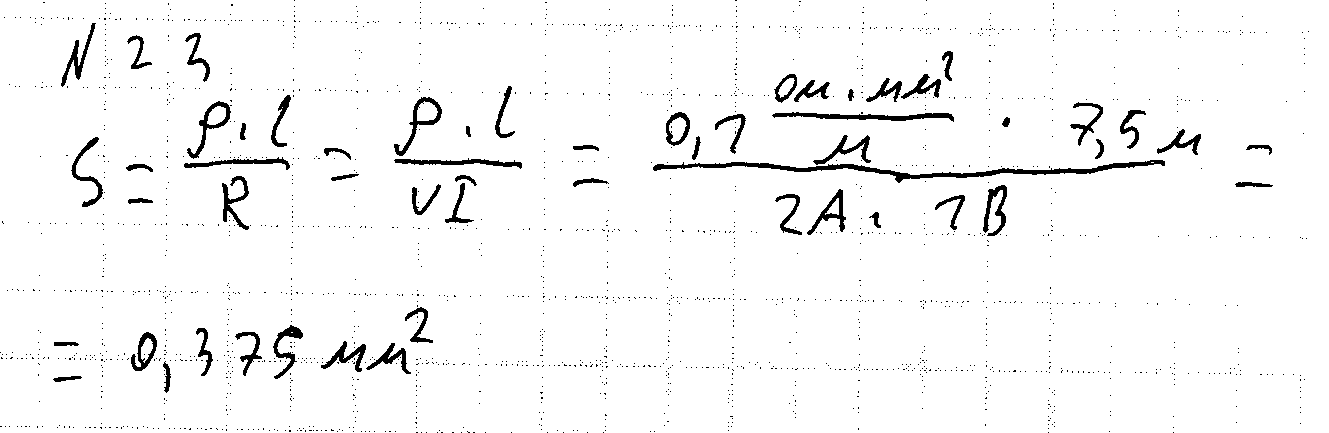 N 23
S = ρ·l / R = ρ·l / VI = 0,1 ом·мм² / м · 7,5 м / 2А · 1В =
= 0,375 мм²